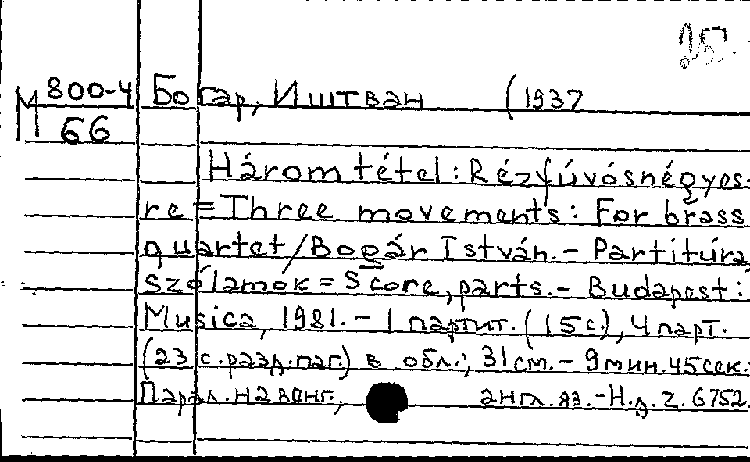 25.
М 800-4 Богар, Иштван (1937
66
Három tétel: Rézfúvósnégyes-
re = Three movements: For brass
quartet / Bogár István. - Partitúra
szólamok = Score, parts. - Budapest:
Musica, 1981. - 1 партит. (15 с.), 4 парт.
(23 с. разд. паг.) в обл.; 31 см. - 9 мин. 45 сек.
Парал. на венг., англ. яз. - Н.д. Z. 6752.